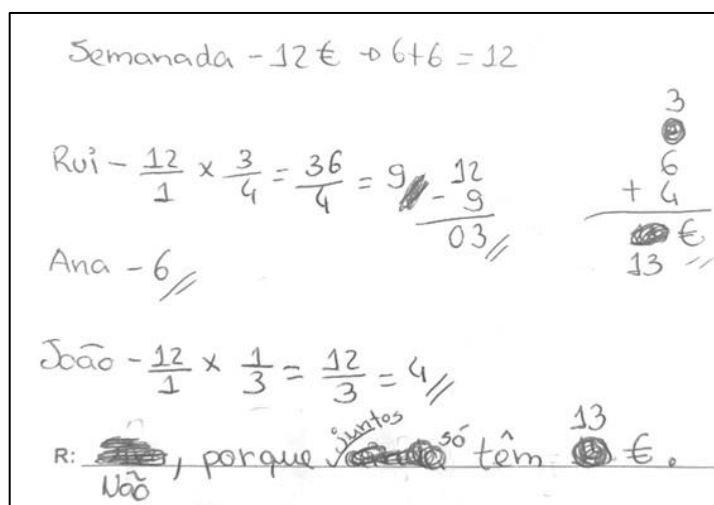 Semanada - 12 € → 6+6 = 12
Rui - 12/1 × 3/4 = 36/4 = 9
12
- 9
03 //
3
6
+ 4
€
13 //
Ana - 6 //
João - 12/1 × 1/3 = 12/3 = 4 //
R: Não, porque juntos só têm 13 €.